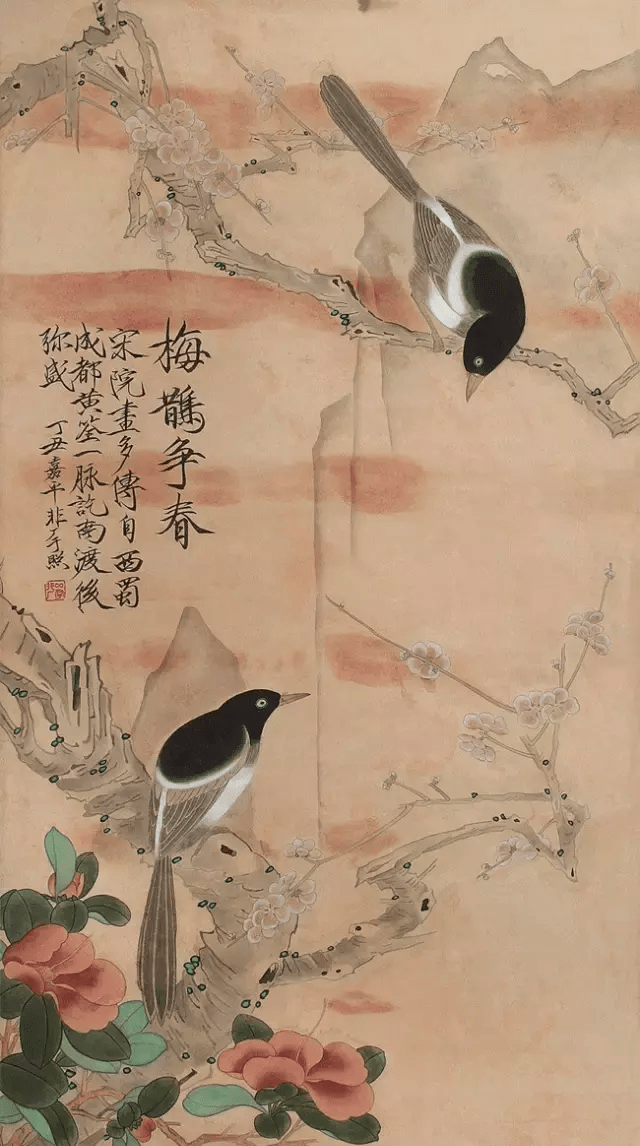 梅鵲争春
宋院畫多傳自西蜀
成都黄筌一脈訖南渡後
弥盛
丁丑嘉平非于照